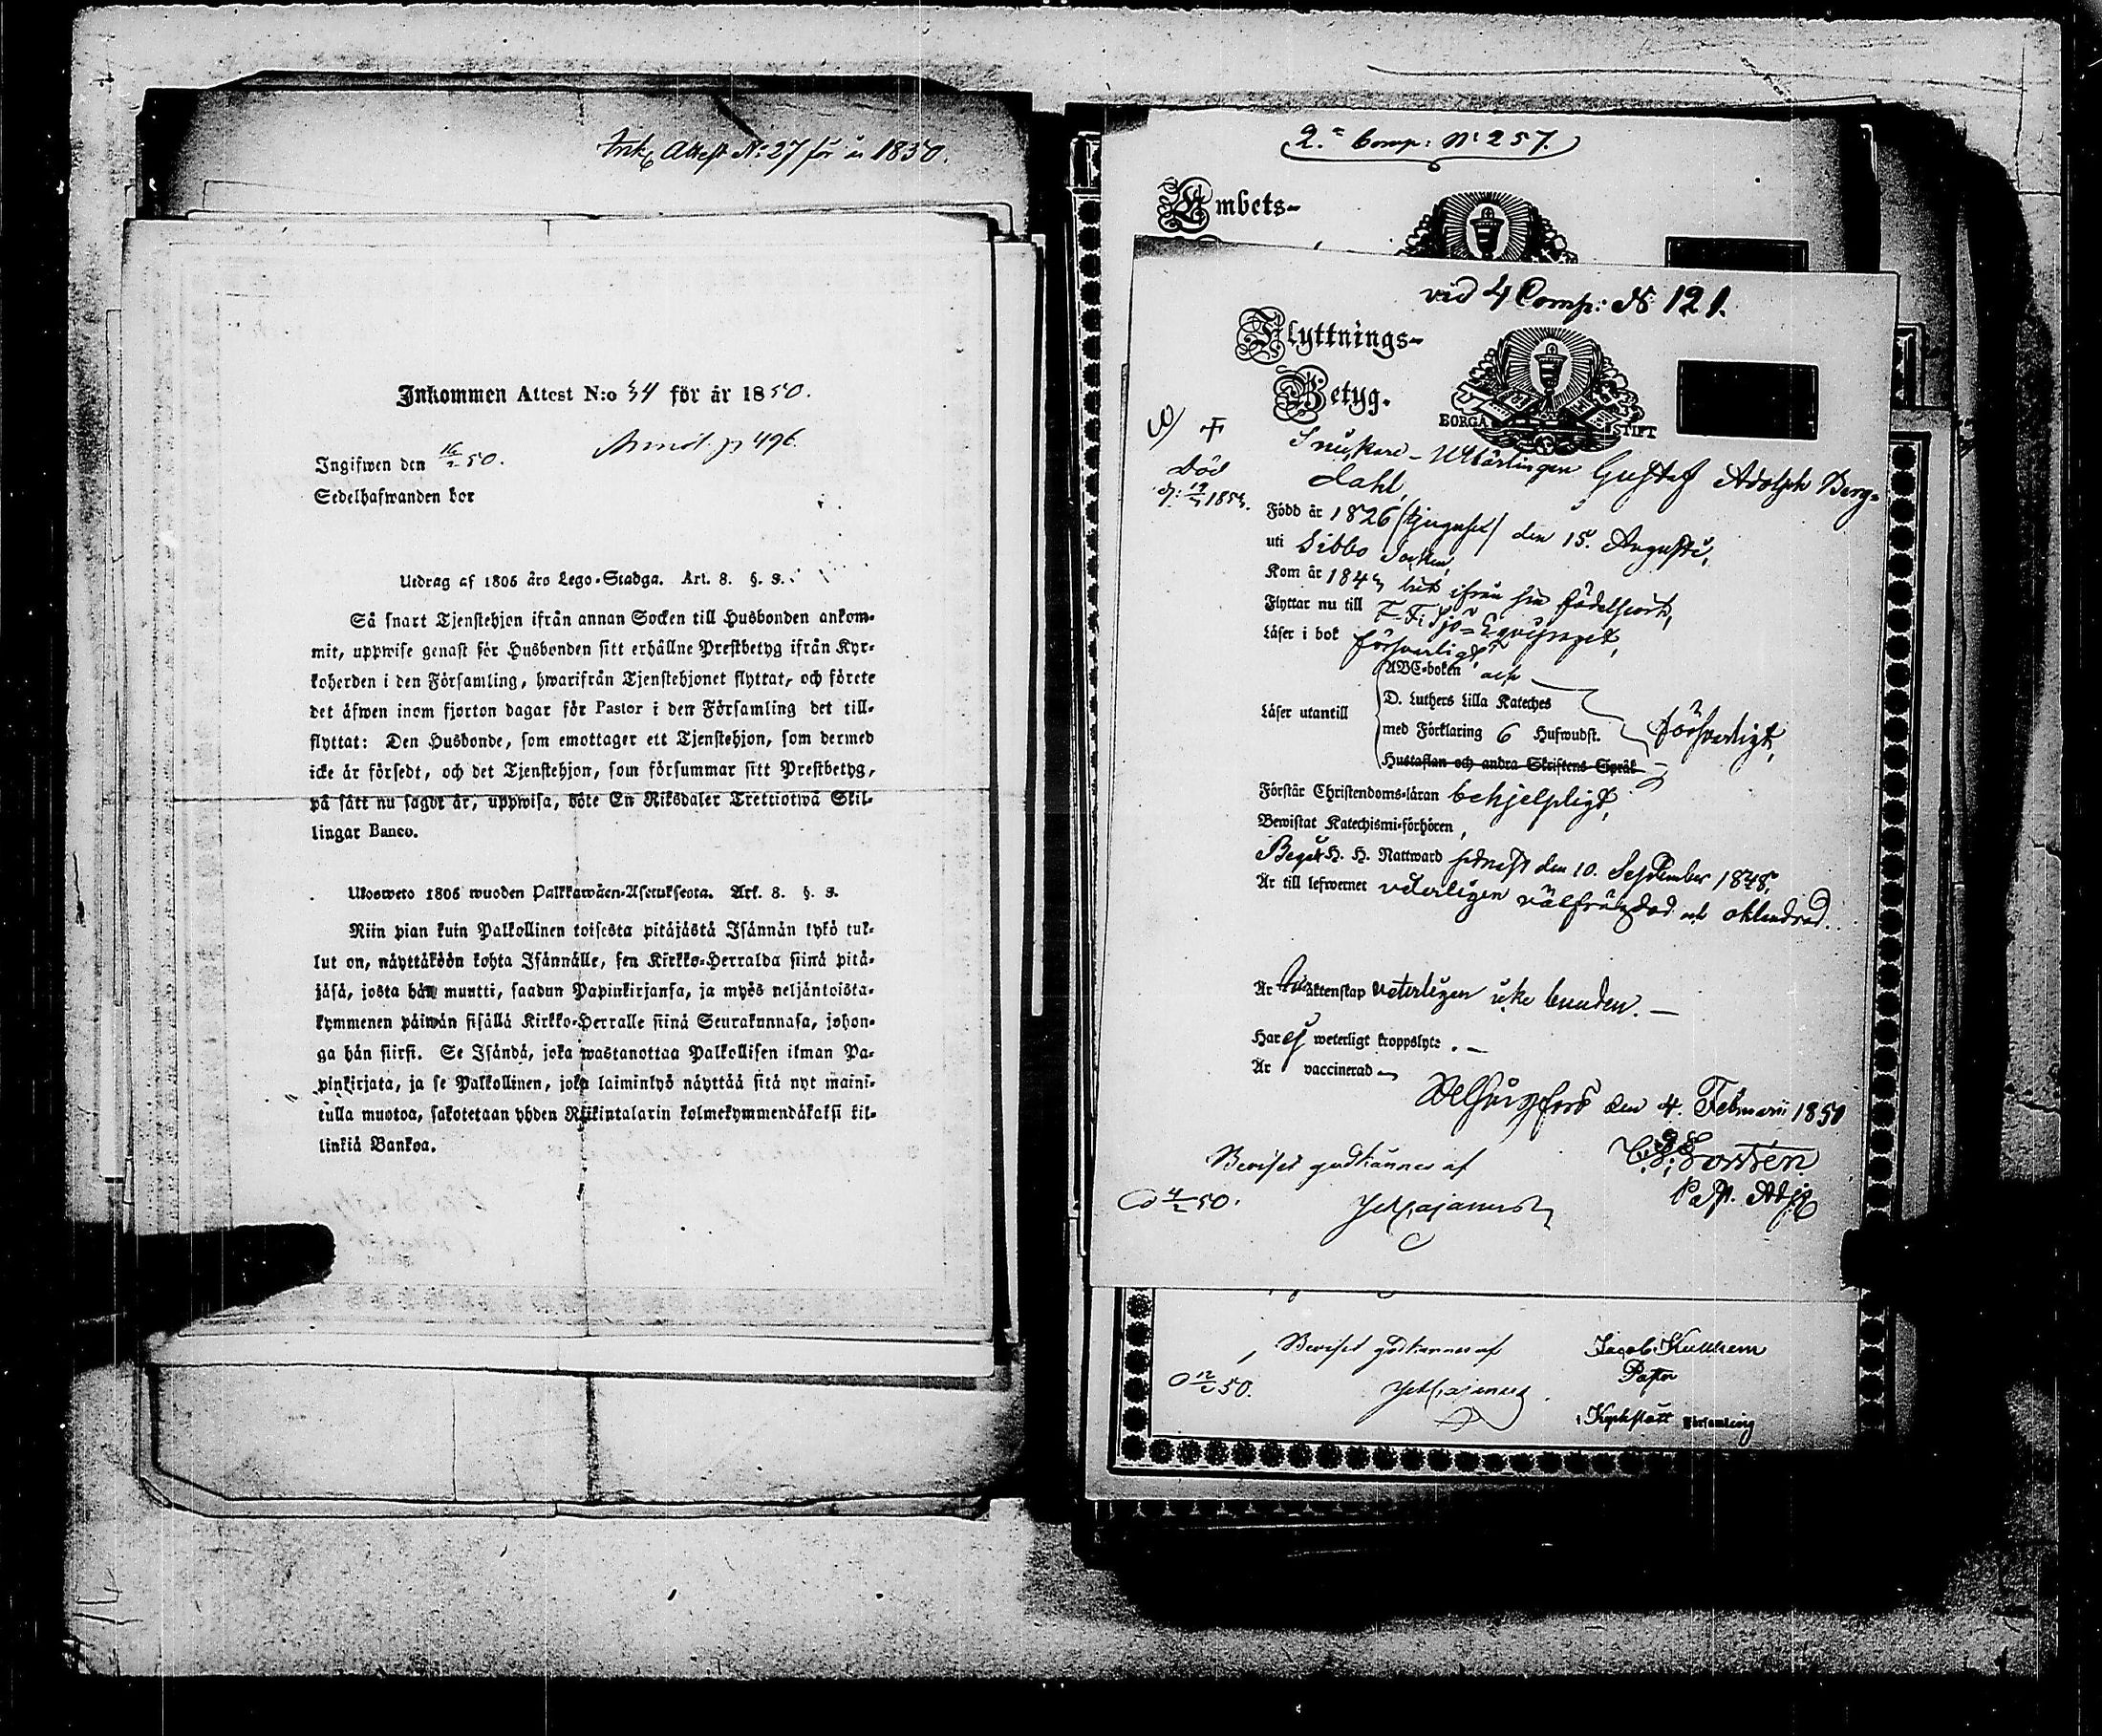 Ink. Attest N:27 för år 1850.
Inkommen Attest N:o 34 för år 1850.
Ingifwen den 16/2 50.
p 496.
Sedelhafwanden bor
Utdrag af 1805 års Lego-Stadga. Art. 8. §. 3.
Så snart Tjenstehjon ifrån annan Socken till Husbonden ankom-
mit, uppwise genast för Husbonden sitt erhållne Prestbetyg ifrån Kyr-
koherden i den Församling, hwarifrån Tjenstehjonet flyttat, och förete
det äfwen inom fjorton dagar för Pastor i den Församling det till-
flyttat: Den Husbonde, som emottager ett Tjenstehjon, som dermed
icke är försedt, och det Tjenstehjon, som försummar sitt Prestbetyg,
på sätt nu sagdt är, uppwisa, böte En Riksdaler Trettiotwå Skil-
lingar Banco.
Ulosweto 1805 wuoden Palkkawäen-Asetuksesta. Art. 8. §. 3.
Niin pian kuin Palkollinen toisesta pitäjästä Isännän tykö tul-
lut on, näyttäköön kohta Isännälle, sen Kirkko-Herralda siinä pitä-
jäsä, josta hän muutti, saadun Papinkirjansa, ja myös neljäntoista-
kymmenen päiwän sisällä Kirkko-Herralle siinä Seurakunnasa, johon-
ga hän siirsi. Se Isändä, joka wastanottaa Palkollisen ilman Pa-
pinkirjata, ja se Palkollinen, joka laiminlyö näyttää sitä nyt maini-
tulla muotoa, sakotetaan yhden Riikintalarin kolmekymmendäkaksi kil-
linkiä Bankoa.
2:a Comp: N:257.
Embets-
vid 4 Comp: N 121.
Flyttnings-
Betyg.
BORGÅ STIFT
Död
Snickare-Utlärlingen Gustaf Adolph Berg-
dahl,
Född år 1826 (tjugusex) den 15. Augusti,
uti Sibbo Socken,
Kom år 184 hit ifrån sin födelseort,
Flyttar nu till F. Fi Sjö-Equipaget,
Läser i bok försvarligt,
ABC-boken och
D. Luthers Lilla Kateches
Läser utantill
med Förklaring 6 Hufwudst. försvarligt,
Hustaflan och andra Skriftens Språk
Förstår Christendoms-läran behjelpligt,
Bewistat Katechismi-förhören,
Begått H. H. Nattward sednast den 10. September 1848,
Är till lefwernet veterligen välfrägdad och oklandrad.
Är äktenskap veterligen icke bunden.
Har ej weterligt kroppslyte.
Är vaccinerad
Helsingfors den 4. Februarii 1850
Past. Adj.
Beviset godkännes af
4/2 50.
Beviset godkännes af
12/2 50.
Jacob
Pastor
i Kyrkslätt Församling